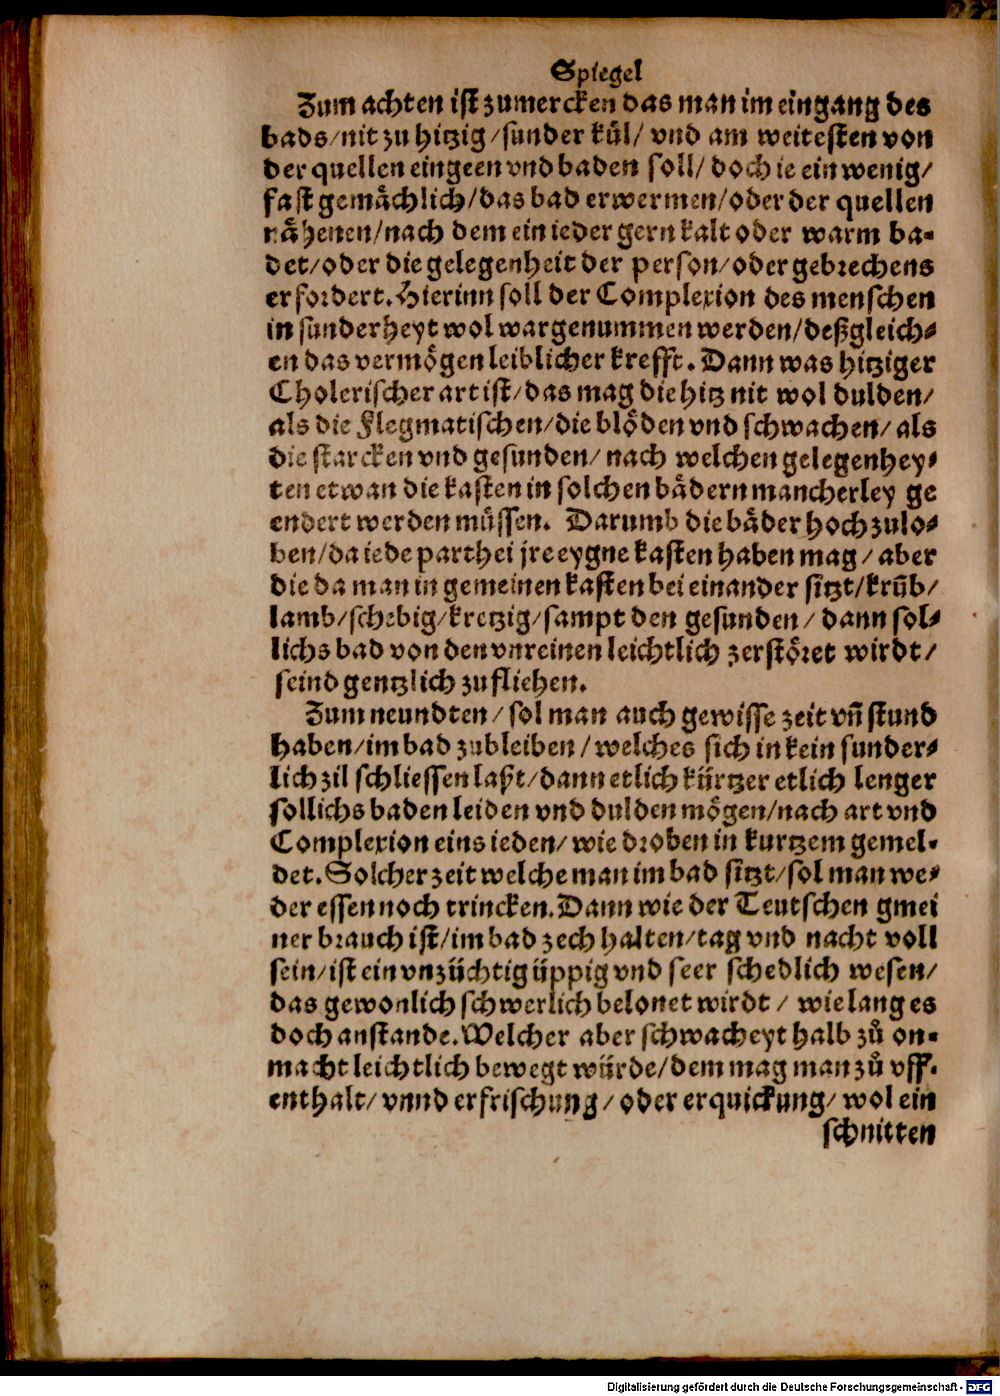 Spiegel
Zum achten ist zumercken das man im eingang des
bads/nit zu hitzig/sunder kül/ vnd am weitesten von
der quellen eingeen vnd baden soll/ doch ie ein wenig/
fast gemächlich/das bad erwermen/oder der quellen
nähenen/nach dem ein ieder gern kalt oder warm ba-
det/oder die gelegenheit der person/oder gebrechens
erfordert. Hierinn soll der Complexion des menschen
in sunderheyt wol wargenummen werden/deßgleich-
en das vermögen leiblicher krefft. Dann was hitziger
Cholerischer art ist/das mag die hitz nit wol dulden/
als die Flegmatischen/die blöden vnd schwachen/ als
die starcken vnd gesunden/ nach welchen gelegenhey-
ten etwan die kasten in solchen bädern mancherley ge
endert werden müssen. Darumb die bäder hoch zulo-
ben/da iede parthei jre eygne kasten haben mag/ aber
die da man in gemeinen kasten bei einander sitzt/krūb/
lamb/schebig/kretzig/sampt den gesunden/ dann sol-
lichs bad von den vnreinen leichtlich zerstöret wirdt/
seind gentzlich zufliehen.
Zum neundten/ sol man auch gewisse zeit vñ stund
haben/im bad zubleiben/welches sich in kein sunder-
lich zil schliessen laßt/dann etlich kürtzer etlich lenger
sollichs baden leiden vnd dulden mögen/nach art vnd
Complexion eins ieden/ wie droben in kurtzem gemel-
det. Solcher zeit welche man im bad sitzt/sol man we-
der essen noch trincken. Dann wie der Teutschen gmei
ner brauch ist/im bad zech halten/tag vnd nacht voll
sein/ist ein vnzüchtig üppig vnd seer schedlich wesen/
das gewonlich schwerlich belonet wirdt/ wie lang es
doch anstande. Welcher aber schwacheyt halb zů on-
macht leichtlich bewegt würde/dem mag man zů vff-
enthalt/ vnnd erfrischung/ oder erquickung/ wol ein
schnitten
Digitalisierung gefördert durch die Deutsche Forschungsgemeinschaft - DFG